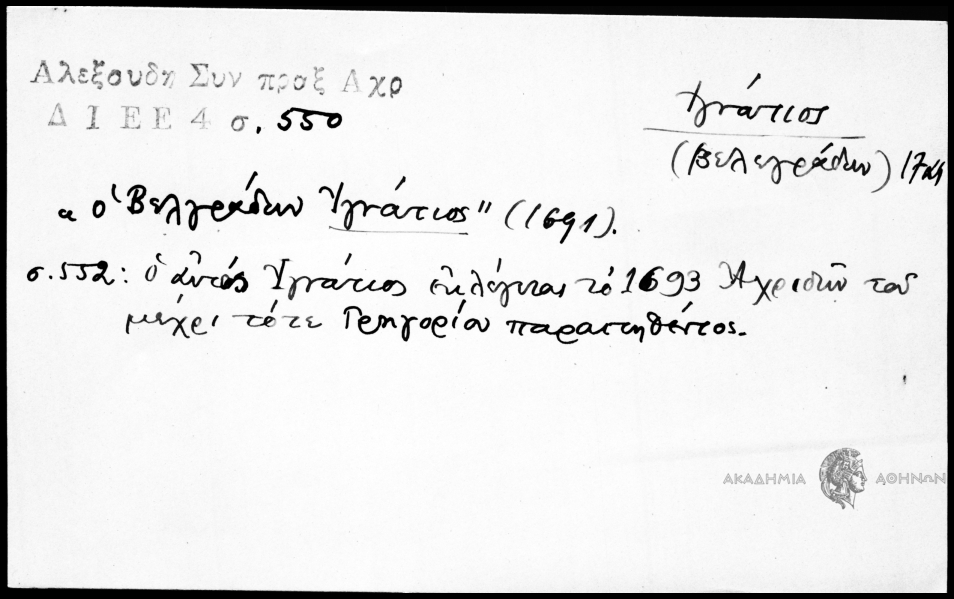 Αλεξουδη Συν πραξ Αχρ
Δ Ι Ε Ε 4 σ. 550
Ἰγνάτιος
(Βελεγράδων)
« ὁ Βελγράδων Ἰγνάτιος" (1691).
σ. 552: ὁ αὐτός Ἰγνάτιος ἐκλέγεται τό 1693 Ἀχριδῶν τοῦ
μέχρι τότε Γρηγορίου παραιτηθέντος.
ΑΚΑΔΗΜΙΑ ΑΘΗΝΩΝ